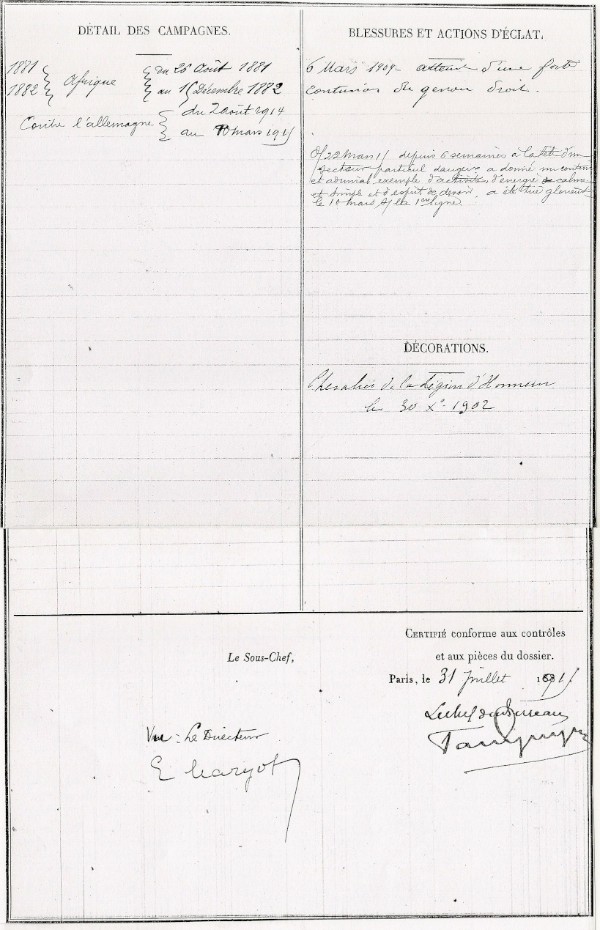 DÉTAIL DES CAMPAGNES.
1881
1882
Afrique
du 20 Août 1881
au 16 Décembre 1882
Contre l'allemagne
du 2 août 1914
au 10 mars 1915
BLESSURES ET ACTIONS D'ÉCLAT.
6 Mars 1909 atteint d'une forte
contusion du genou droit.
22 Mars 15 depuis 6 semaines à la tête d'un
secteur particul danger a donné un
et admirable exemple d'activité d'énergie calme
et simple et d'esprit de devoir. a été tué glorieust
le 10 mars s/ la 1ère ligne
DÉCORATIONS.
Chevalier de la Légion d'Honneur
le 30 Xe 1902
CERTIFIÉ conforme aux contrôles
et aux pièces du dossier.
Le Sous-Chef,
Paris, le 31 Juillet 1915
Le Chef du Bureau
Vu : Le Directeur